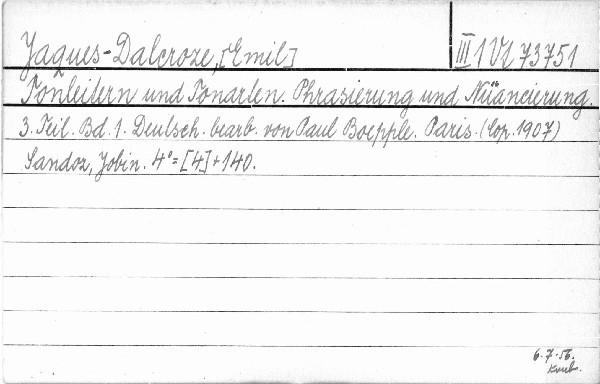 Jaques-Dalcroze, [Emil] III 1 Vr 73751
Tonleitern und Tonarten. Phrasierung und Nüancierung.
3. Teil. Bd. 1. Deutsch. bearb. von Paul Boepple. Paris. (Cop. 1907)
Sandoz, Jobin. 4° = [4] + 140.
6.7.56.